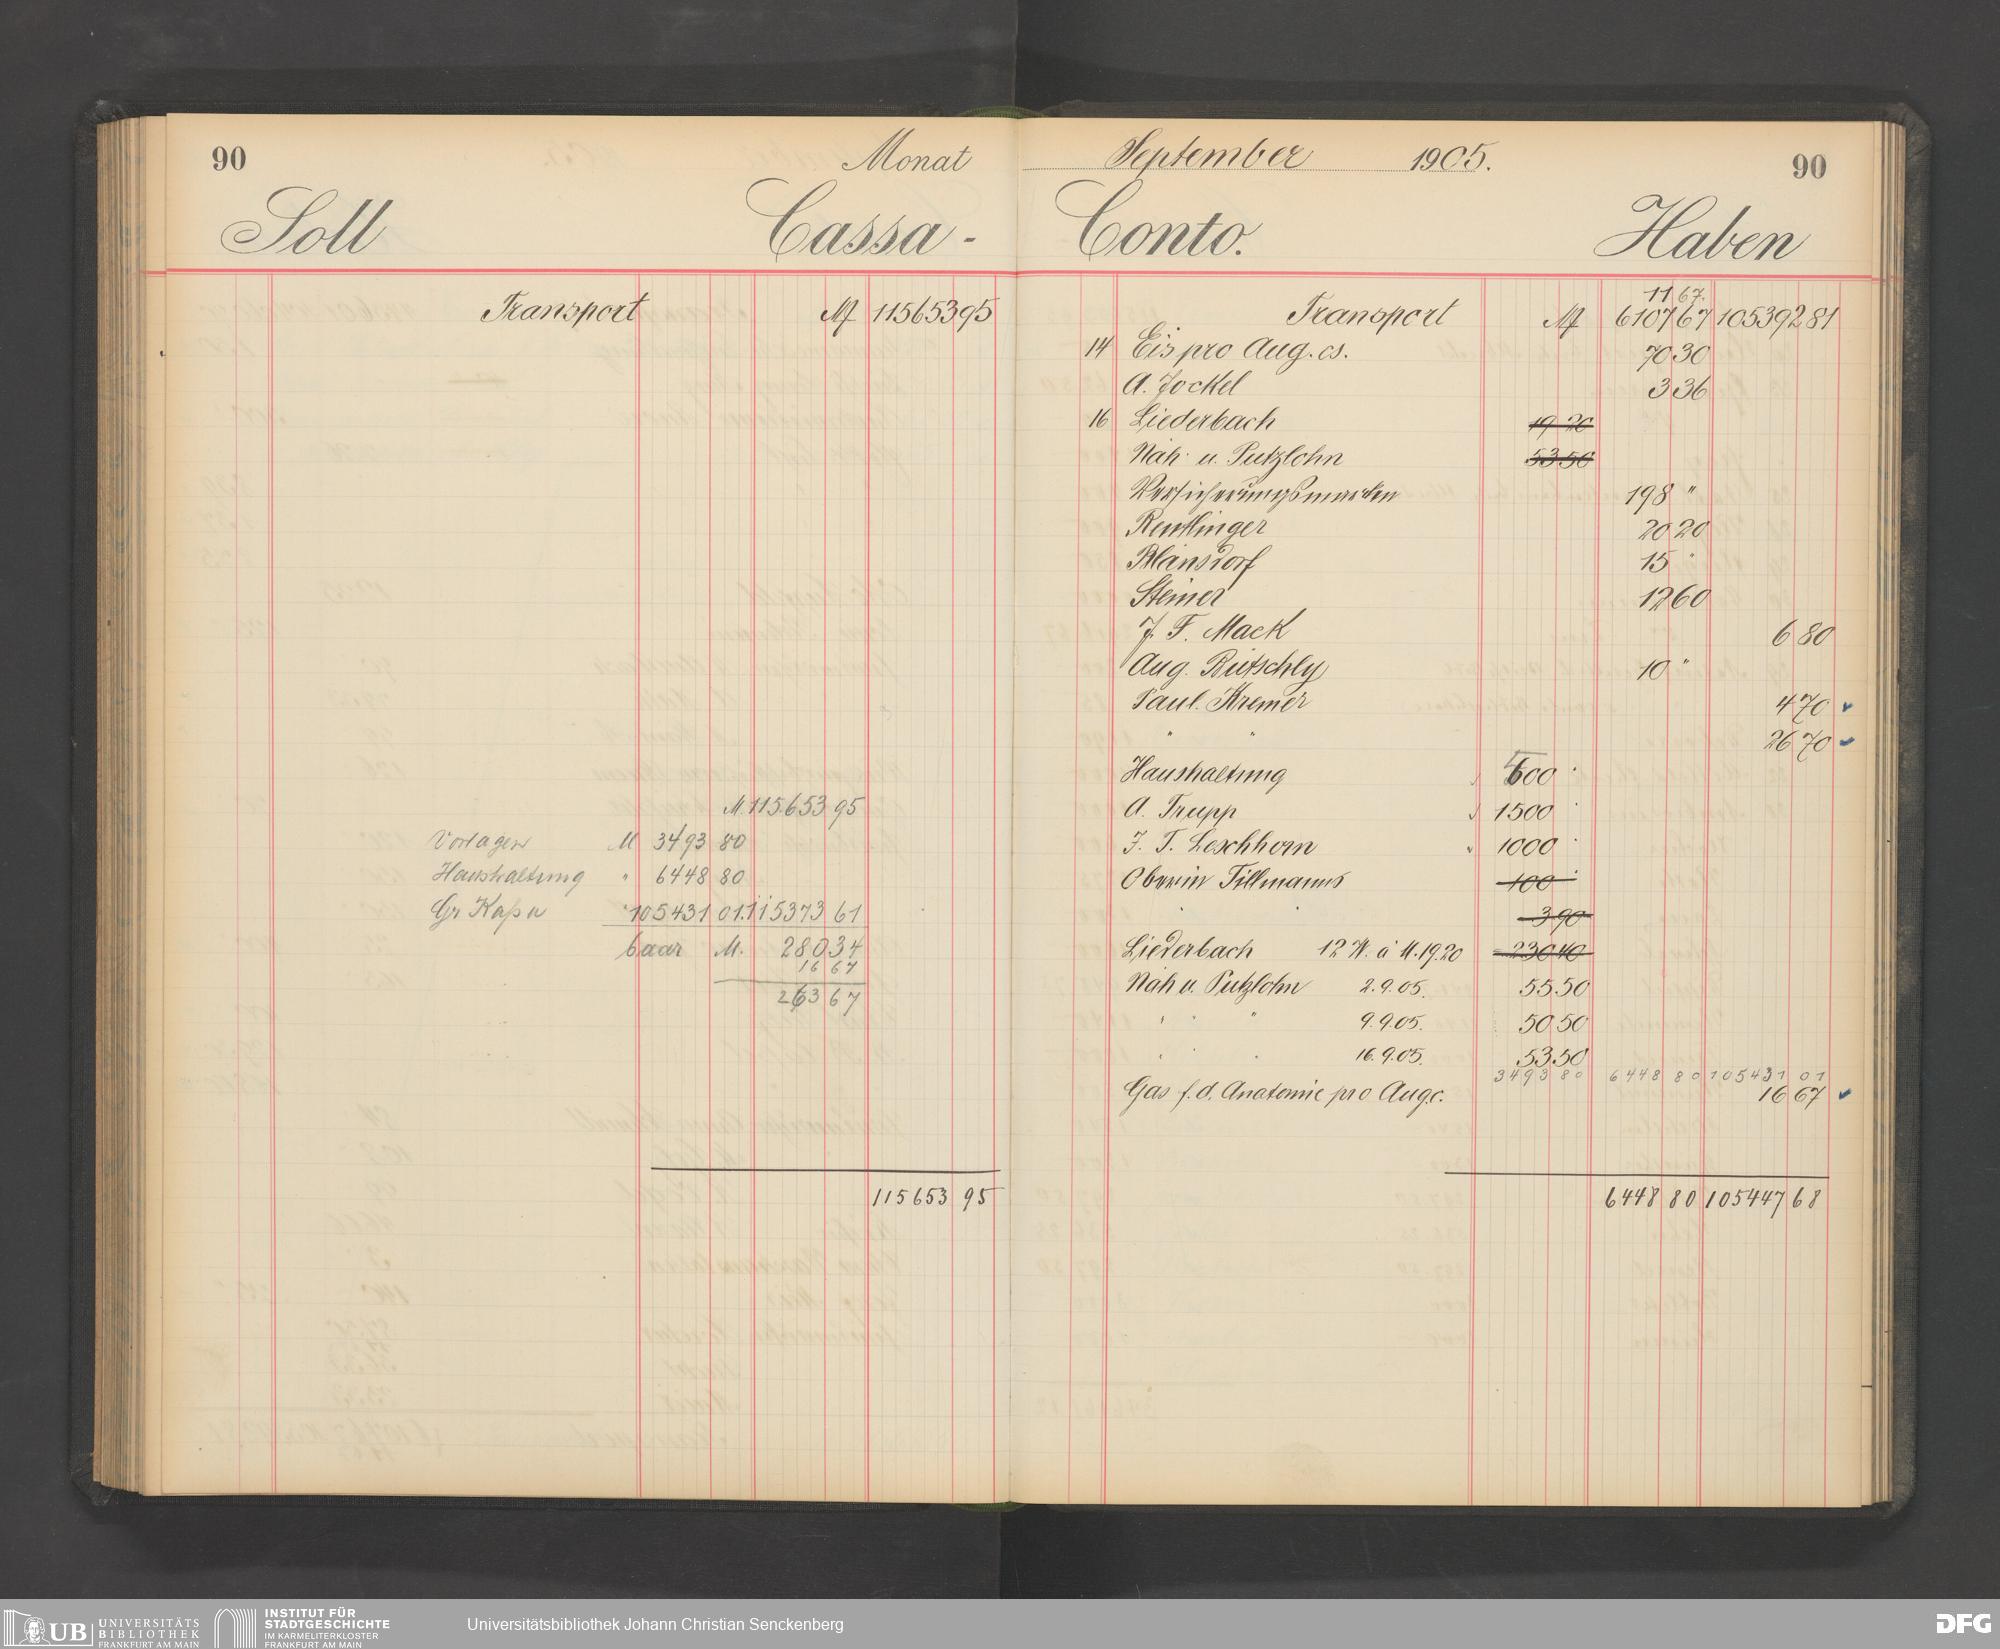 90
Monat
Soll
Cassa-
Transport M 115653 95
M. 115.653 95
Vorlagen M 3493 80
Haushaltung " 6448 80
Gr Kasse 105431 01. 115373 61
baar M. 280 34
16 67
263 67
115653 95
September 1905.
90
Conto.
Haben
11 67.
Transport M 6107 67 105392 81
14 Eis pro Aug. cs. 70 30
A. Jockel 3 36
16 Liederbach 19 20
Näh- u. Putzlohn 53 50
Versicherungsmarken 198 "
Reutlinger 20 20
Blänsdorf 15 "
Steiner 12 60
J. F. Mack 6 80
Aug. Rütschly 10 "
Paul Kremer 4 70
" " 26 70
Haushaltung 500
A. Trupp 1500
J. T. Leschhorn 1000
Oberin Tillmanns 100
3 90
Liederbach 12 W. à M. 19.20 230 40
Näh u. Putzlohn 2.9.05. 55 50
" " " 9.9.05. 50 50
" " " 16.9.05. 53 50
3493 80 6448 80 105431 01
Gas f. d. Anatomie pro Aug. c. 16 67
6448 80 105447 68
UB UNIVERSITÄTS
BIBLIOTHEK
FRANKFURT AM MAIN
INSTITUT FÜR
STADTGESCHICHTE
IM KARMELITERKLOSTER
FRANKFURT AM MAIN
Universitätsbibliothek Johann Christian Senckenberg
DFG